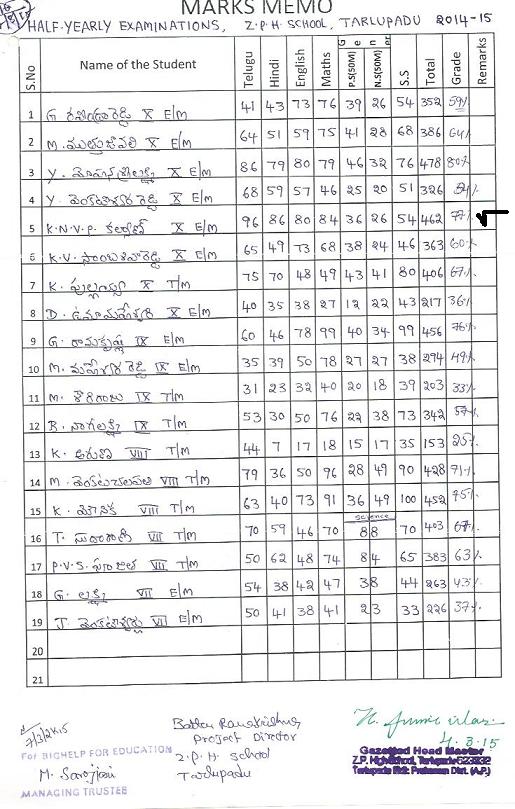 MARKS MEMO
HALF-YEARLY EXAMINATIONS, Z.P.H. SCHOOL, TARLUPADU 2014-15
S.No Name of the Student Telugu Hindi English Maths Gener P.S(50M) N.S(50M) S.S Total Grade Remarks
1 G X E/M 41 43 73 76 39 26 54 352 59%
2 M. X E/M 64 51 59 75 41 28 68 386 64%
3 Y. X E/M 86 79 80 79 46 32 76 478 80%
4 Y. వెంకటేశ్వర రెడ్డి X E/M 68 59 57 46 25 20 51 326
5 K.N.V.P. కల్యాణ్ X E/M 96 86 80 84 36 26 54 462 77%
6 K.V. సాంబశివారెడ్డి X E/M 65 49 73 68 38 24 46 363 60%
7 K. X T/M 75 70 48 49 43 41 80 406 67%
8 D. ఉమామహేశ్వరి X E/M 40 35 38 27 12 22 43 217 36%
9 G. రామకృష్ణ IX E/M 60 46 78 99 40 34 99 456 76%
10 M. మహేశ్వర రెడ్డి IX E/M 35 39 50 78 27 27 38 294 49%
11 M. శౌరిరాజు IX T/M 31 23 32 40 20 18 39 203 33%
12 R. నాగలక్ష్మి IX T/M 53 30 50 76 22 38 73 342 57%
13 K. అరుణ VIII T/M 44 7 17 18 15 17 35 153 25%
14 M. వెంకటాచలపతి VIII T/M 79 36 50 96 28 49 90 428 71%
15 K. మౌనిక VIII T/M 63 40 73 91 36 49 100 452 75%
science
16 T. VIII T/M 70 59 46 70 88 70 403 67%
17 P.V.S. VII T/M 50 62 48 74 84 65 383 63%
18 G. లక్ష్మి VII E/M 54 38 42 47 38 44 263 43%
19 J వెంకటేశ్వర్లు VI E/M 50 41 38 41 23 33 226 37%
20
21
7/3/2K15
For BIGHELP FOR EDUCATION
M. Sarojini
MANAGING TRUSTEE
Project Director
Z.P.H School
Tarlupadu
4.3.15
Gazetted Head Master
Z.P. High School, Tarlupadu-523332
Tarlupadu Prakasam Dist. (A.P.)